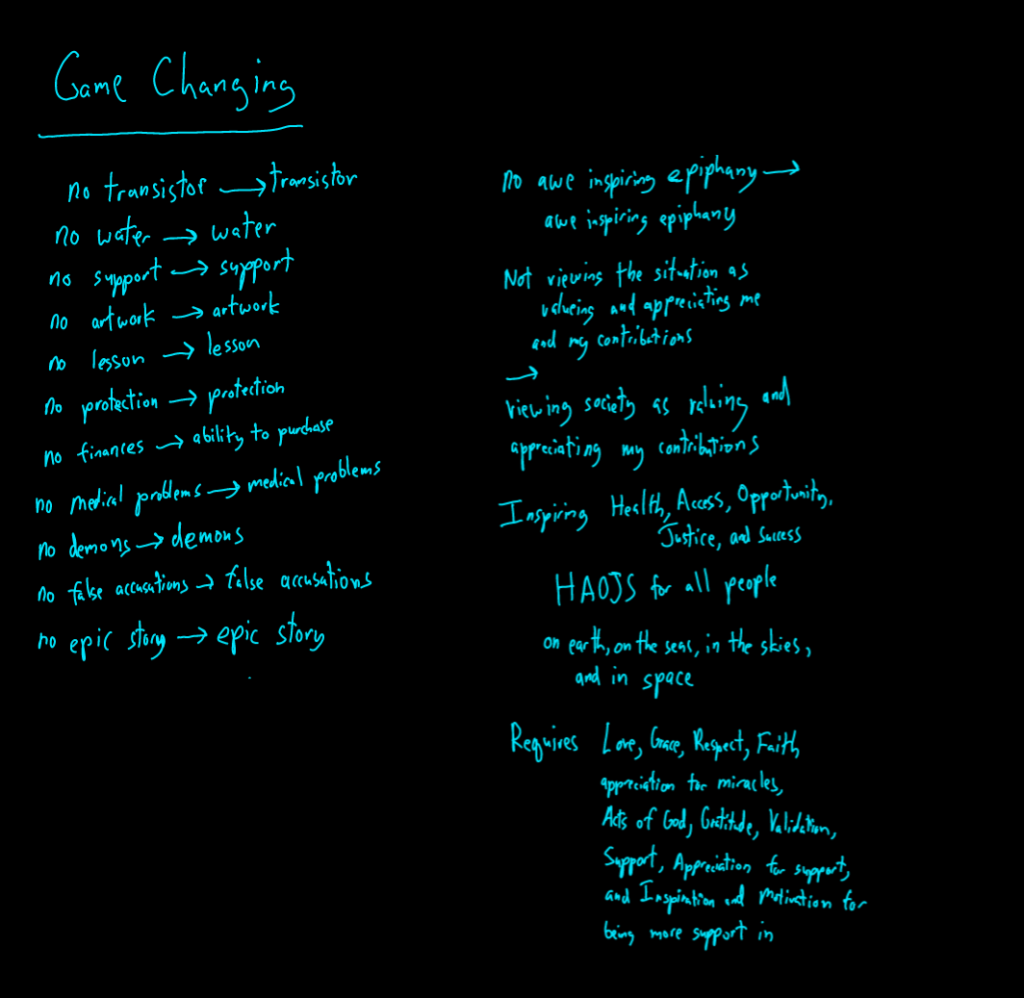 Game Changing
no transistor → transistor
no water → water
no support → support
no artwork → artwork
no lesson → lesson
no protection → protection
no finances → ability to purchase
no medical problems → medical problems
no demons → demons
no false accusations → false accusations
no epic story → epic story
no awe inspiring epiphany →
awe inspiring epiphany
Not viewing the situation as
valueing and appreciating me
and my contributions
→
viewing society as valuing and
appreciating my contributions
Inspiring Health, Access, Opportunity,
Justice, and Success
HAOJS for all people
on earth, on the seas, in the skies,
and in space
Requires Love, Grace, Respect, Faith
appreciation for miracles,
Acts of God, Gratitude, Validation,
Support, Appreciation for support,
and Inspiration and Motivation for
being more support in